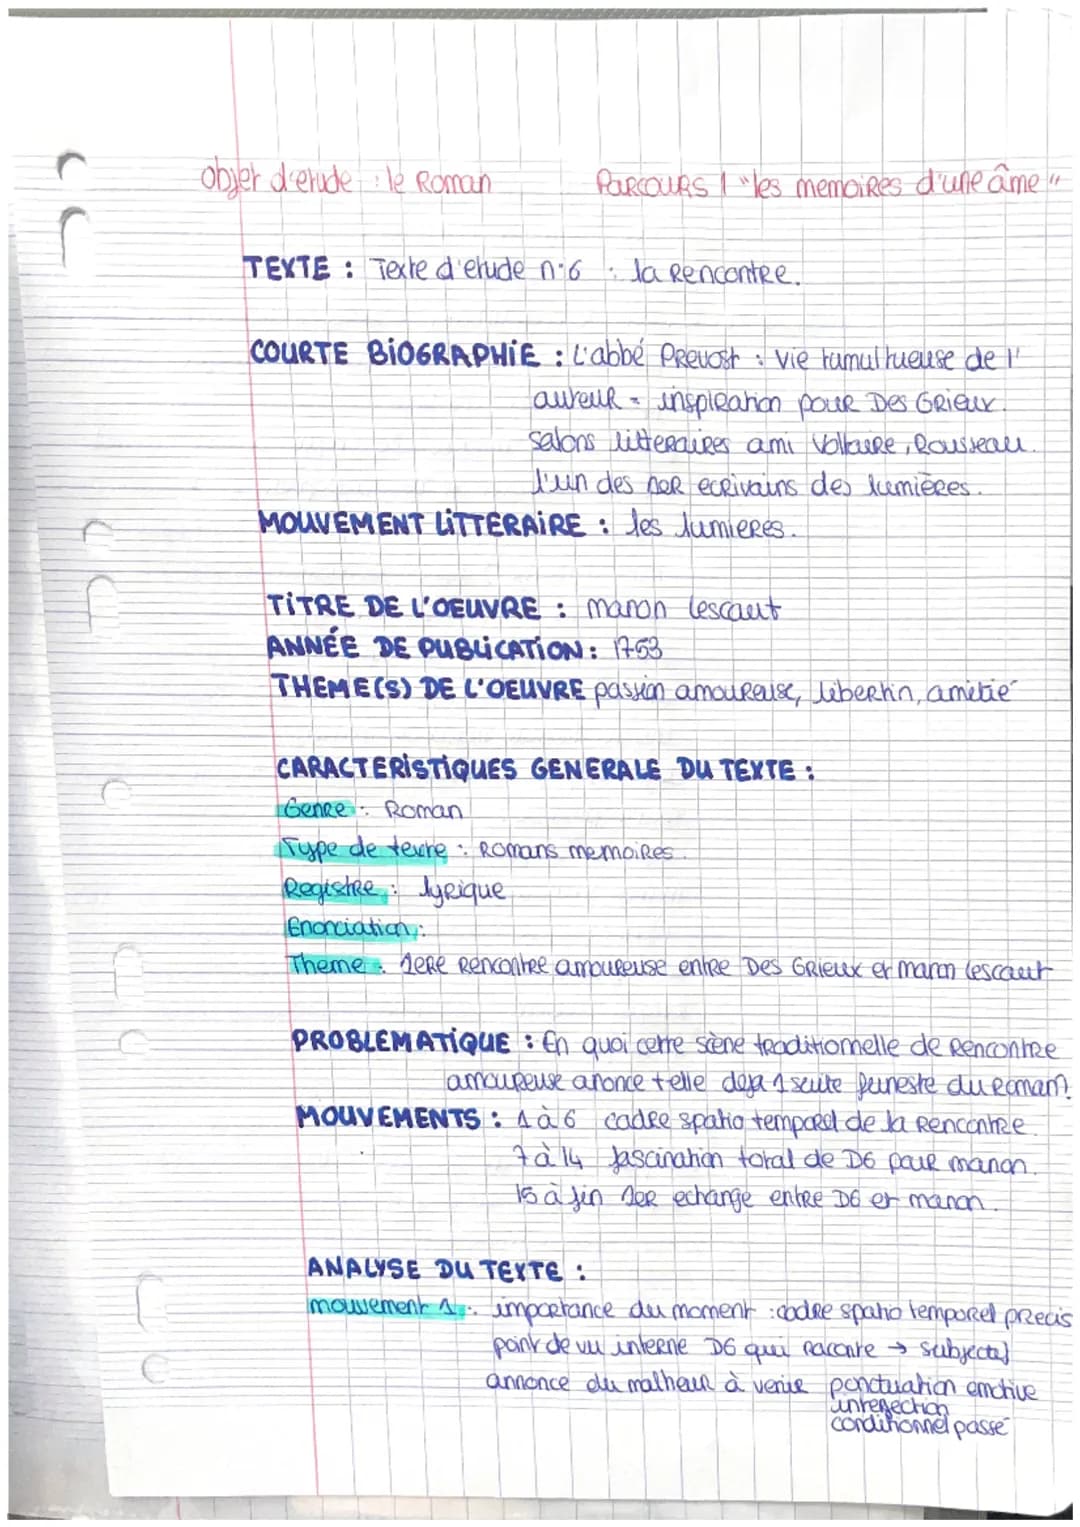 objet d'etude : le Roman PARCOURS 1 "les memoires d'une âme"
TEXTE : Texte d'etude n°6 : la Rencontre.
COURTE BIOGRAPHIE : L'abbé Prevost : vie tumultueuse de l'
auteur = inspiration pour Des Grieux.
salons litteraires ami Voltaire, Rousseau.
l'un des 1er ecrivains des lumières.
MOUVEMENT LITTERAIRE : les lumieres.
TITRE DE L'OEUVRE : manon lescaut
ANNÉE DE PUBLICATION : 1753
THEME(S) DE L'OEUVRE passion amoureuse, libertin, amitié
CARACTERISTIQUES GENERALE DU TEXTE :
Genre : Roman
Type de texte : Romans memoires.
Registre : lyrique
Enonciation :
Theme : 1ere Rencontre amoureuse entre Des Grieux et manon lescaut
PROBLEMATIQUE : En quoi cette scène traditionnelle de Rencontre
amoureuse anonce t elle deja 1 suite funeste du roman?
MOUVEMENTS : 1 à 6 cadre spatio temporel de la Rencontre.
7 à 14 fascination total de DG pour manon.
15 à fin 1er echange entre DG et manon.
ANALYSE DU TEXTE :
mouvement 1 : importance du moment : cadre spatio temporel precis
point de vu interne DG qui raconte → subjectif
annonce du malheur à venir ponctuation emotive
interjection
conditionnel passé